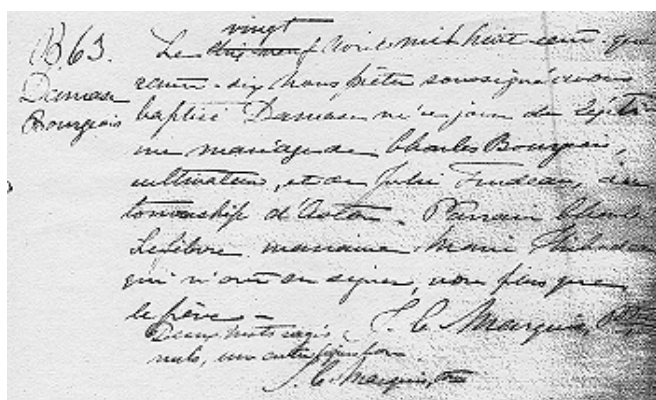 B.63.
Damase
Bourgeois
vingt
Le dix neuf Avril mil huit cent qua
rante-six nous prêtre soussigné avons
baptisé Damase né ce jour du légiti
me mariage de Charles Bourgeois,
cultivateur, et de Julie Trudeau, du
township d'Acton. Parrain Charles
Lefebvre marraine Marie Thibodeau
qui n'ont su signer, non plus que
le père -
Deux mots rayés
nuls, un autre
J. C. Marquis, Ptre
J. C. Marquis, Ptre